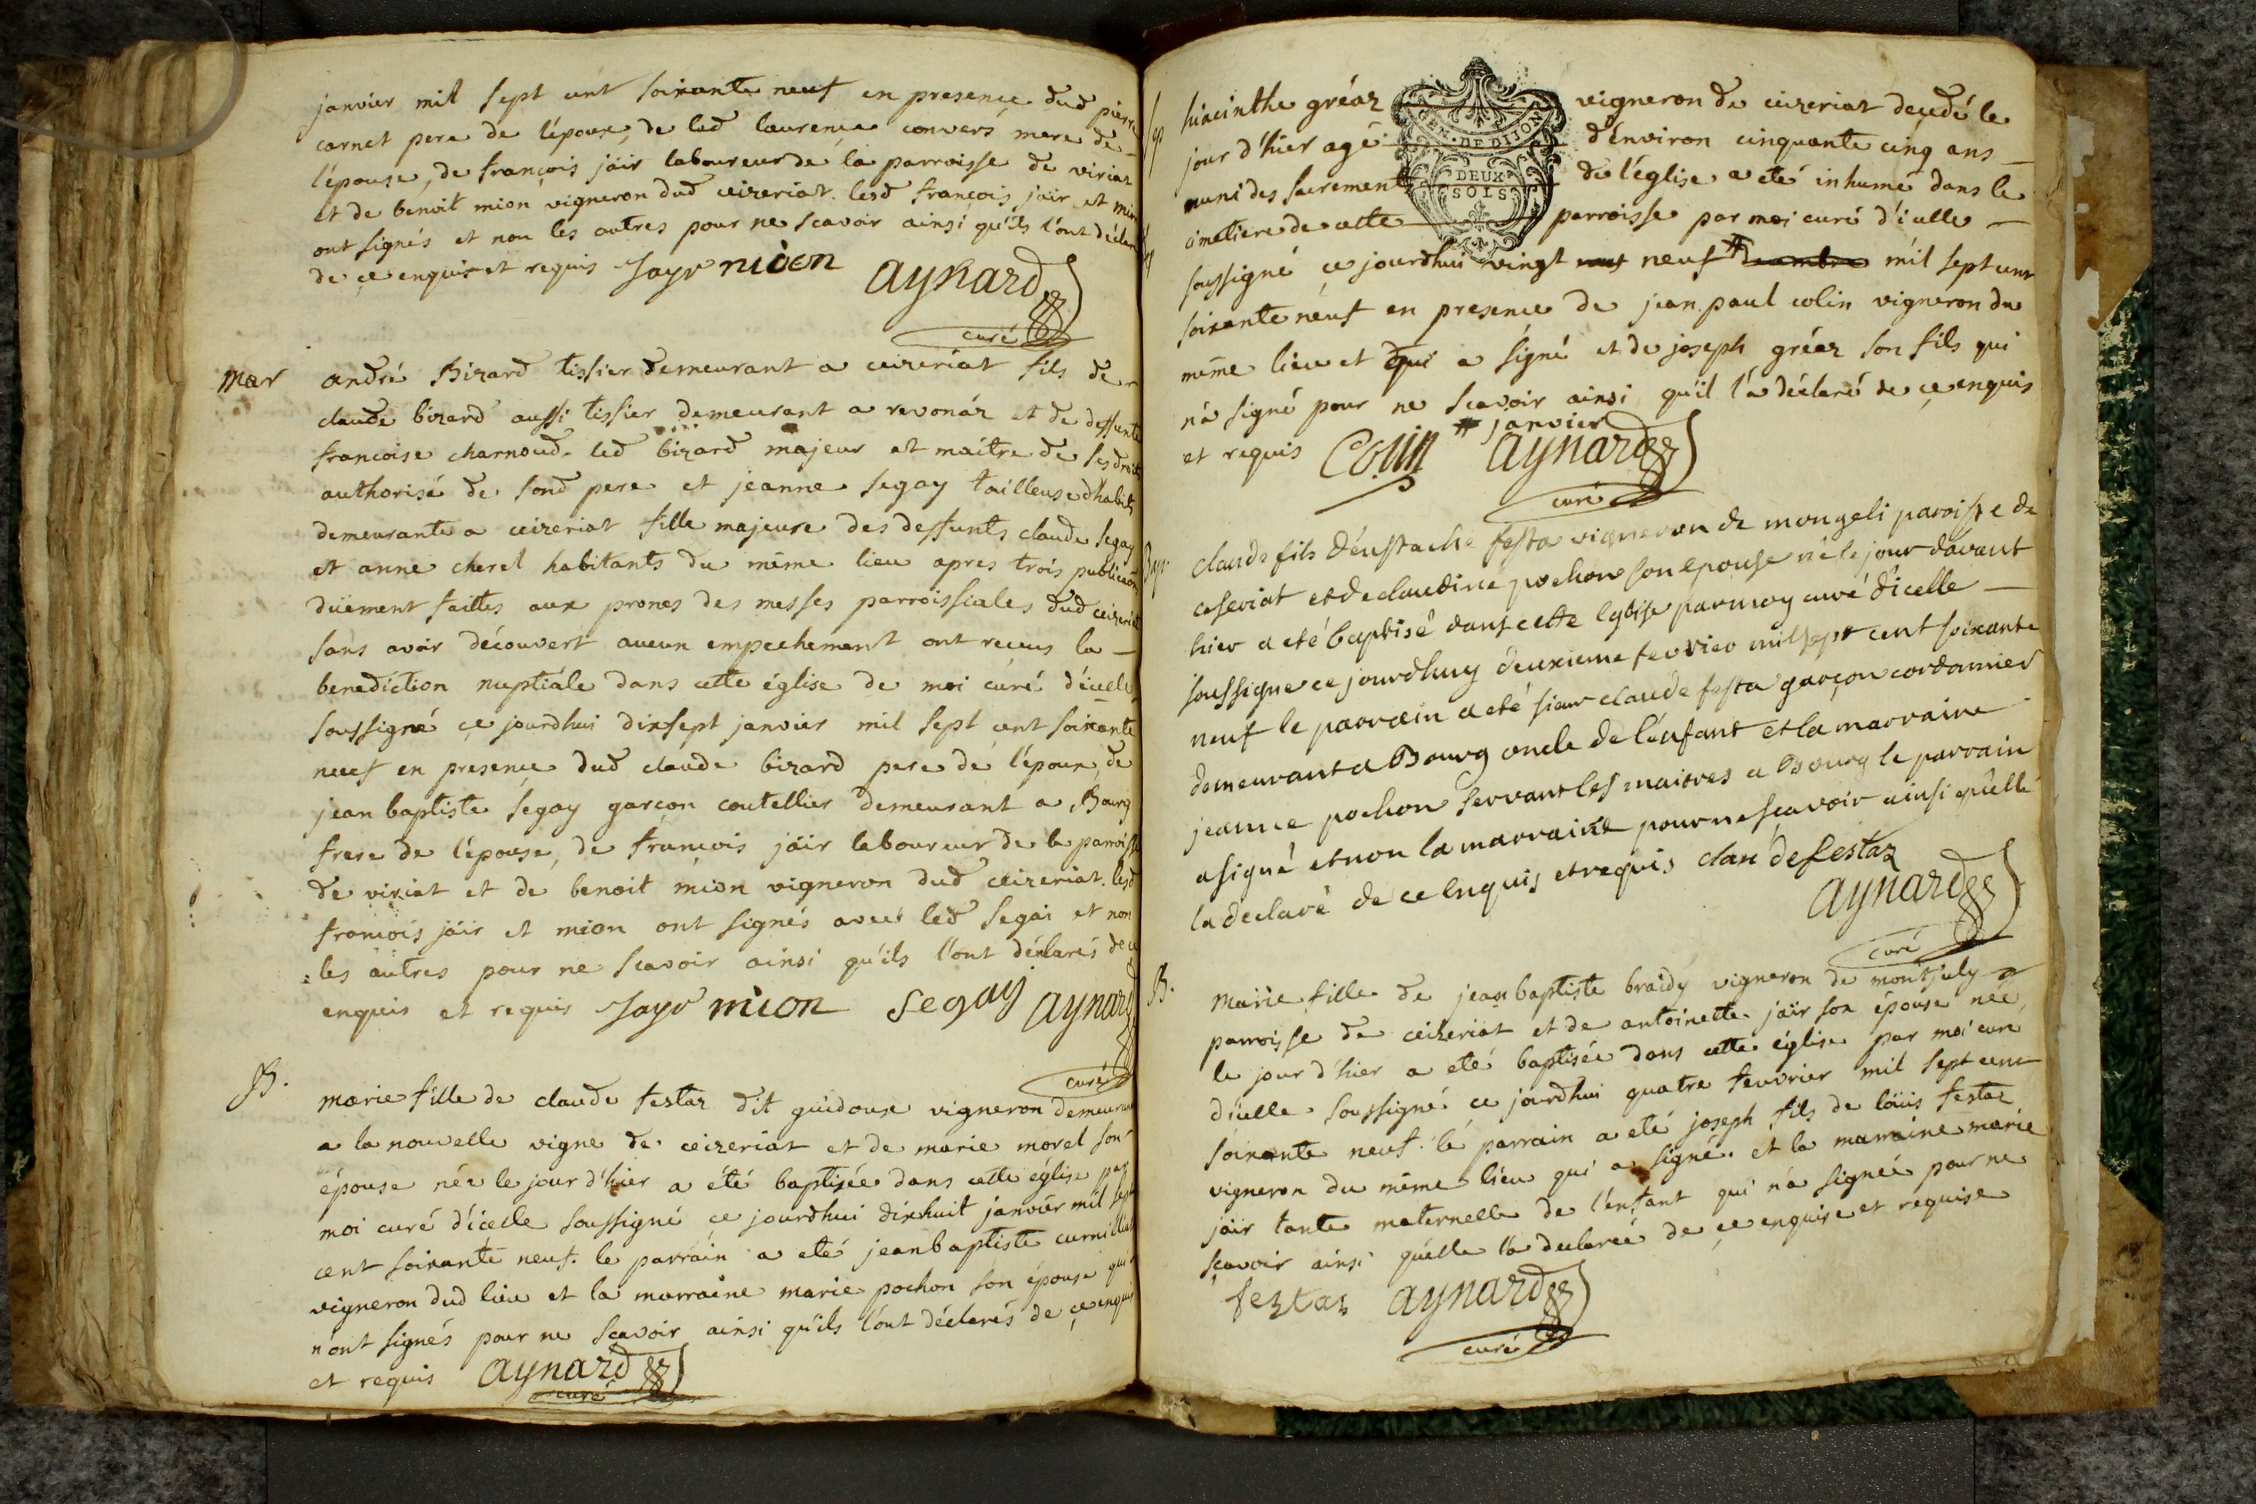 janvier mil sept cent soixante neuf en presence dud pierre
carnet pere de l'époux, de led laurence convers mere de
l'épouse, de françois jáir laboureur de la parroisse de viriat
et de benoit mion vigneron dud ceizeriat. lesd françois jair et mion
ont signés et non les autres pour ne scavoir ainsi qu'ils l'ont déclaré
de ce enquis et requis Jayr mion aynard
curé
mar
andré Bizard tissier demeurant a ceizeriat fils de
claude bizard aussi tissier demeurant a revonáz et de deffunte
francoise charnoud. led bizard majeur et maitre de ses droits
authorisé de sond pere et jeanne segay tailleuse d'habits
demeurante a ceizeriat fille majeure des deffunts claude segay
et anne cherel habitants du même lieu apres trois publications
düement faittes aux prones des messes parroissiales dud ceizeriat
sans avoir découvert aucun empechement ont recus la
benediction nuptiále dans cette église de moi curé d'icelle
soussigné ce jourdhui dixsept janvier mil sept cent soixante
neuf en presence dud claude bizard pere de l'époux, de
jean baptiste segay garçon coutellier demeurant a Bourg
frere de l'épouse, de françois jáir laboureur de la parroisse
de viriat et de benoit mion vigneron dud ceizeriat. lesd
françois jáir et mion ont signés avec led segai et non
les autres pour ne scavoir ainsi qu'ils l'ont déclarés de ce
enquis et requis Jayr mion segay aynard
curé
B.
marie fille de claude festaz dit guidoux vigneron demeurant
a la nouvelle vigne de ceizeriat et de marie morel son
épouse née le jour d'hier a été baptisée dans cette église par
moi curé d'icelle soussigné ce jourdhui dixhuit janvier mil sept
cent soixante neuf. le parrain a eté jeanbaptiste curnillat
vigneron dud lieu et la marraine marie pochon son épouse qui
n'ont signés pour ne scavoir ainsi qu'ils l'ont déclarés de ce enquis
et requis aynard
curé
hiacinthe gréaz vigneron de ceizeriat decédé le
GEN. DE DIJON
DEUX
SOLS
jour d'hier agé d'énviron cinquante cinq ans
muni des sacrements de l'église a eté inhumé dans le
cimetiere de cette parroisse par moi curé d'icelle
soussigné ce jourdhui vingt neuf # mil sept cent
soixante neuf en presence de jean paul colin vigneron du
même lieu et qui a signé et de joseph gréaz son fils qui
n'a signé pour ne scavoir ainsi qu'il l'a déclaré de ce enquis
# janvier
et requis Colin aynard
curé
claude fils d'eustache festa vigneron de mongeli paroisse de
ceseriat et de claudine pochon son epouse né le jour davant
hier a eté baptisé dans cette eglise par moy curé d'icelle
soussigne ce jourdhuy deuxieme fevrier mil sept cent soixante
neuf le parrain a eté sieur claude festa garçon cordonnier
demeurant a Bourg oncle de l'enfant et la marraine
jeanne pochon servant les maitres a Bourg le parrain
a signé et non la marraine pour ne scavoir ainsi qu'elle
la declaré de ce enquis et requis claude festaz
aynard
curé
B.
marie fille de jeanbaptiste braidy vigneron de montjuly
parroisse de ceizeriat et de antoinette jáir son épouse née
le jour d'hier a eté baptisée dans cette église par moi curé
d'icelle soussigné ce jourdhui quatre fevvrier mil sept cent
soixante neuf. le parrain a eté joseph fils de loüis festaz
vigneron du même lieu qui a signé. et la marraine marie
jáir tante maternelle de l'enfant qui n'a signée pour ne
scavoir ainsi qu'elle l'a declarée de ce enquise et requise
festaz aynard
curé